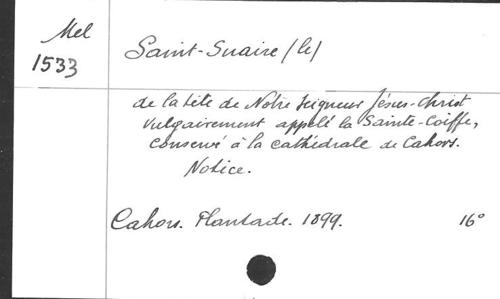 Mel
1533
Saint-Suaire (le)
de la tête de Notre Seigneur Jésus-Christ
vulgairement appelé la Sainte-Coiffe,
conservé à la cathédrale de Cahors.
Notice.
Cahors. Plantade. 1899. 16°